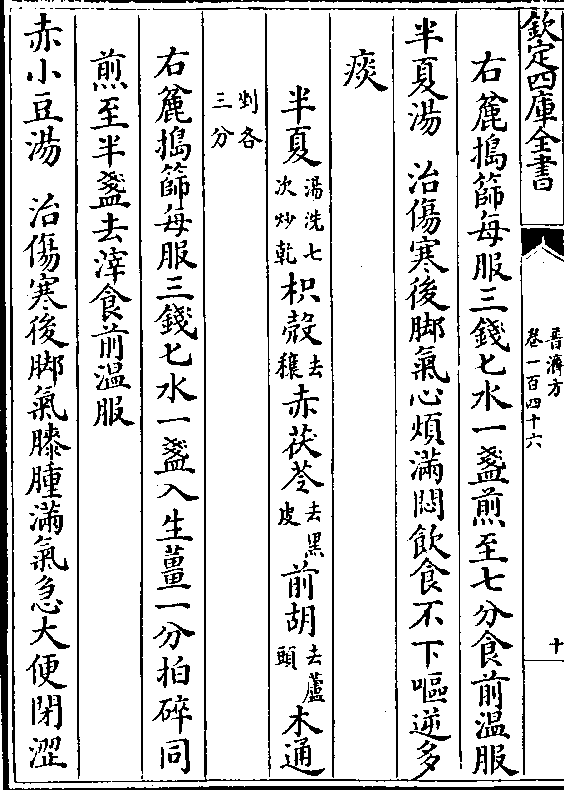 欽定四庫全書
普濟方
卷一百四十六
十
右麄搗篩每服三錢匕水一盞煎至七分食前温服
半夏湯　治傷寒後脚氣心煩滿悶飲食不下嘔逆多
痰
半夏湯洗七次炒乾枳殼去穰赤茯苓去黑皮前胡去蘆頭木通
剉各三分
右麄搗篩每服三錢匕水一盞入生薑一分拍碎同
煎至半盞去滓食前温服
赤小豆湯　治傷寒後脚氣膝腫滿氣急大便閉澀